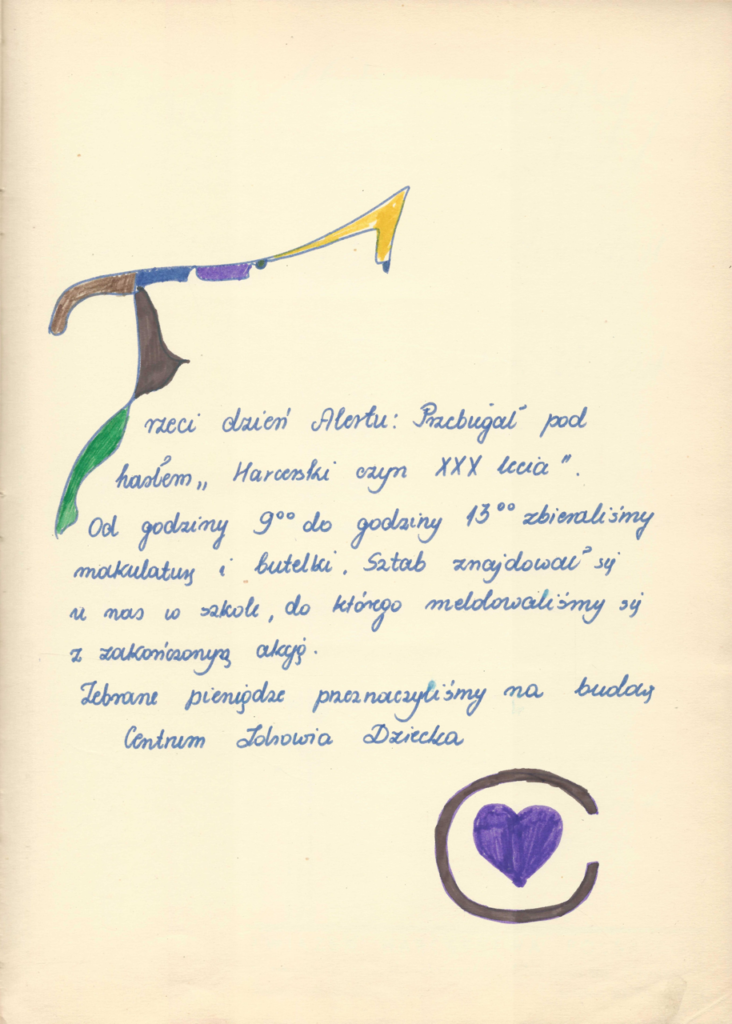 Trzeci dzień Alertu: Przebiegał pod
hasłem „ Harcerski czyn XXX lecia”.
Od godziny 9⁰⁰ do godziny 13⁰⁰ zbieraliśmy
makulaturę i butelki. Sztab znajdował się
u nas w szkole, do którego meldowaliśmy się
z zakończoną akcją.
Zebrane pieniądze przeznaczyliśmy na budowę
Centrum Zdrowia Dziecka